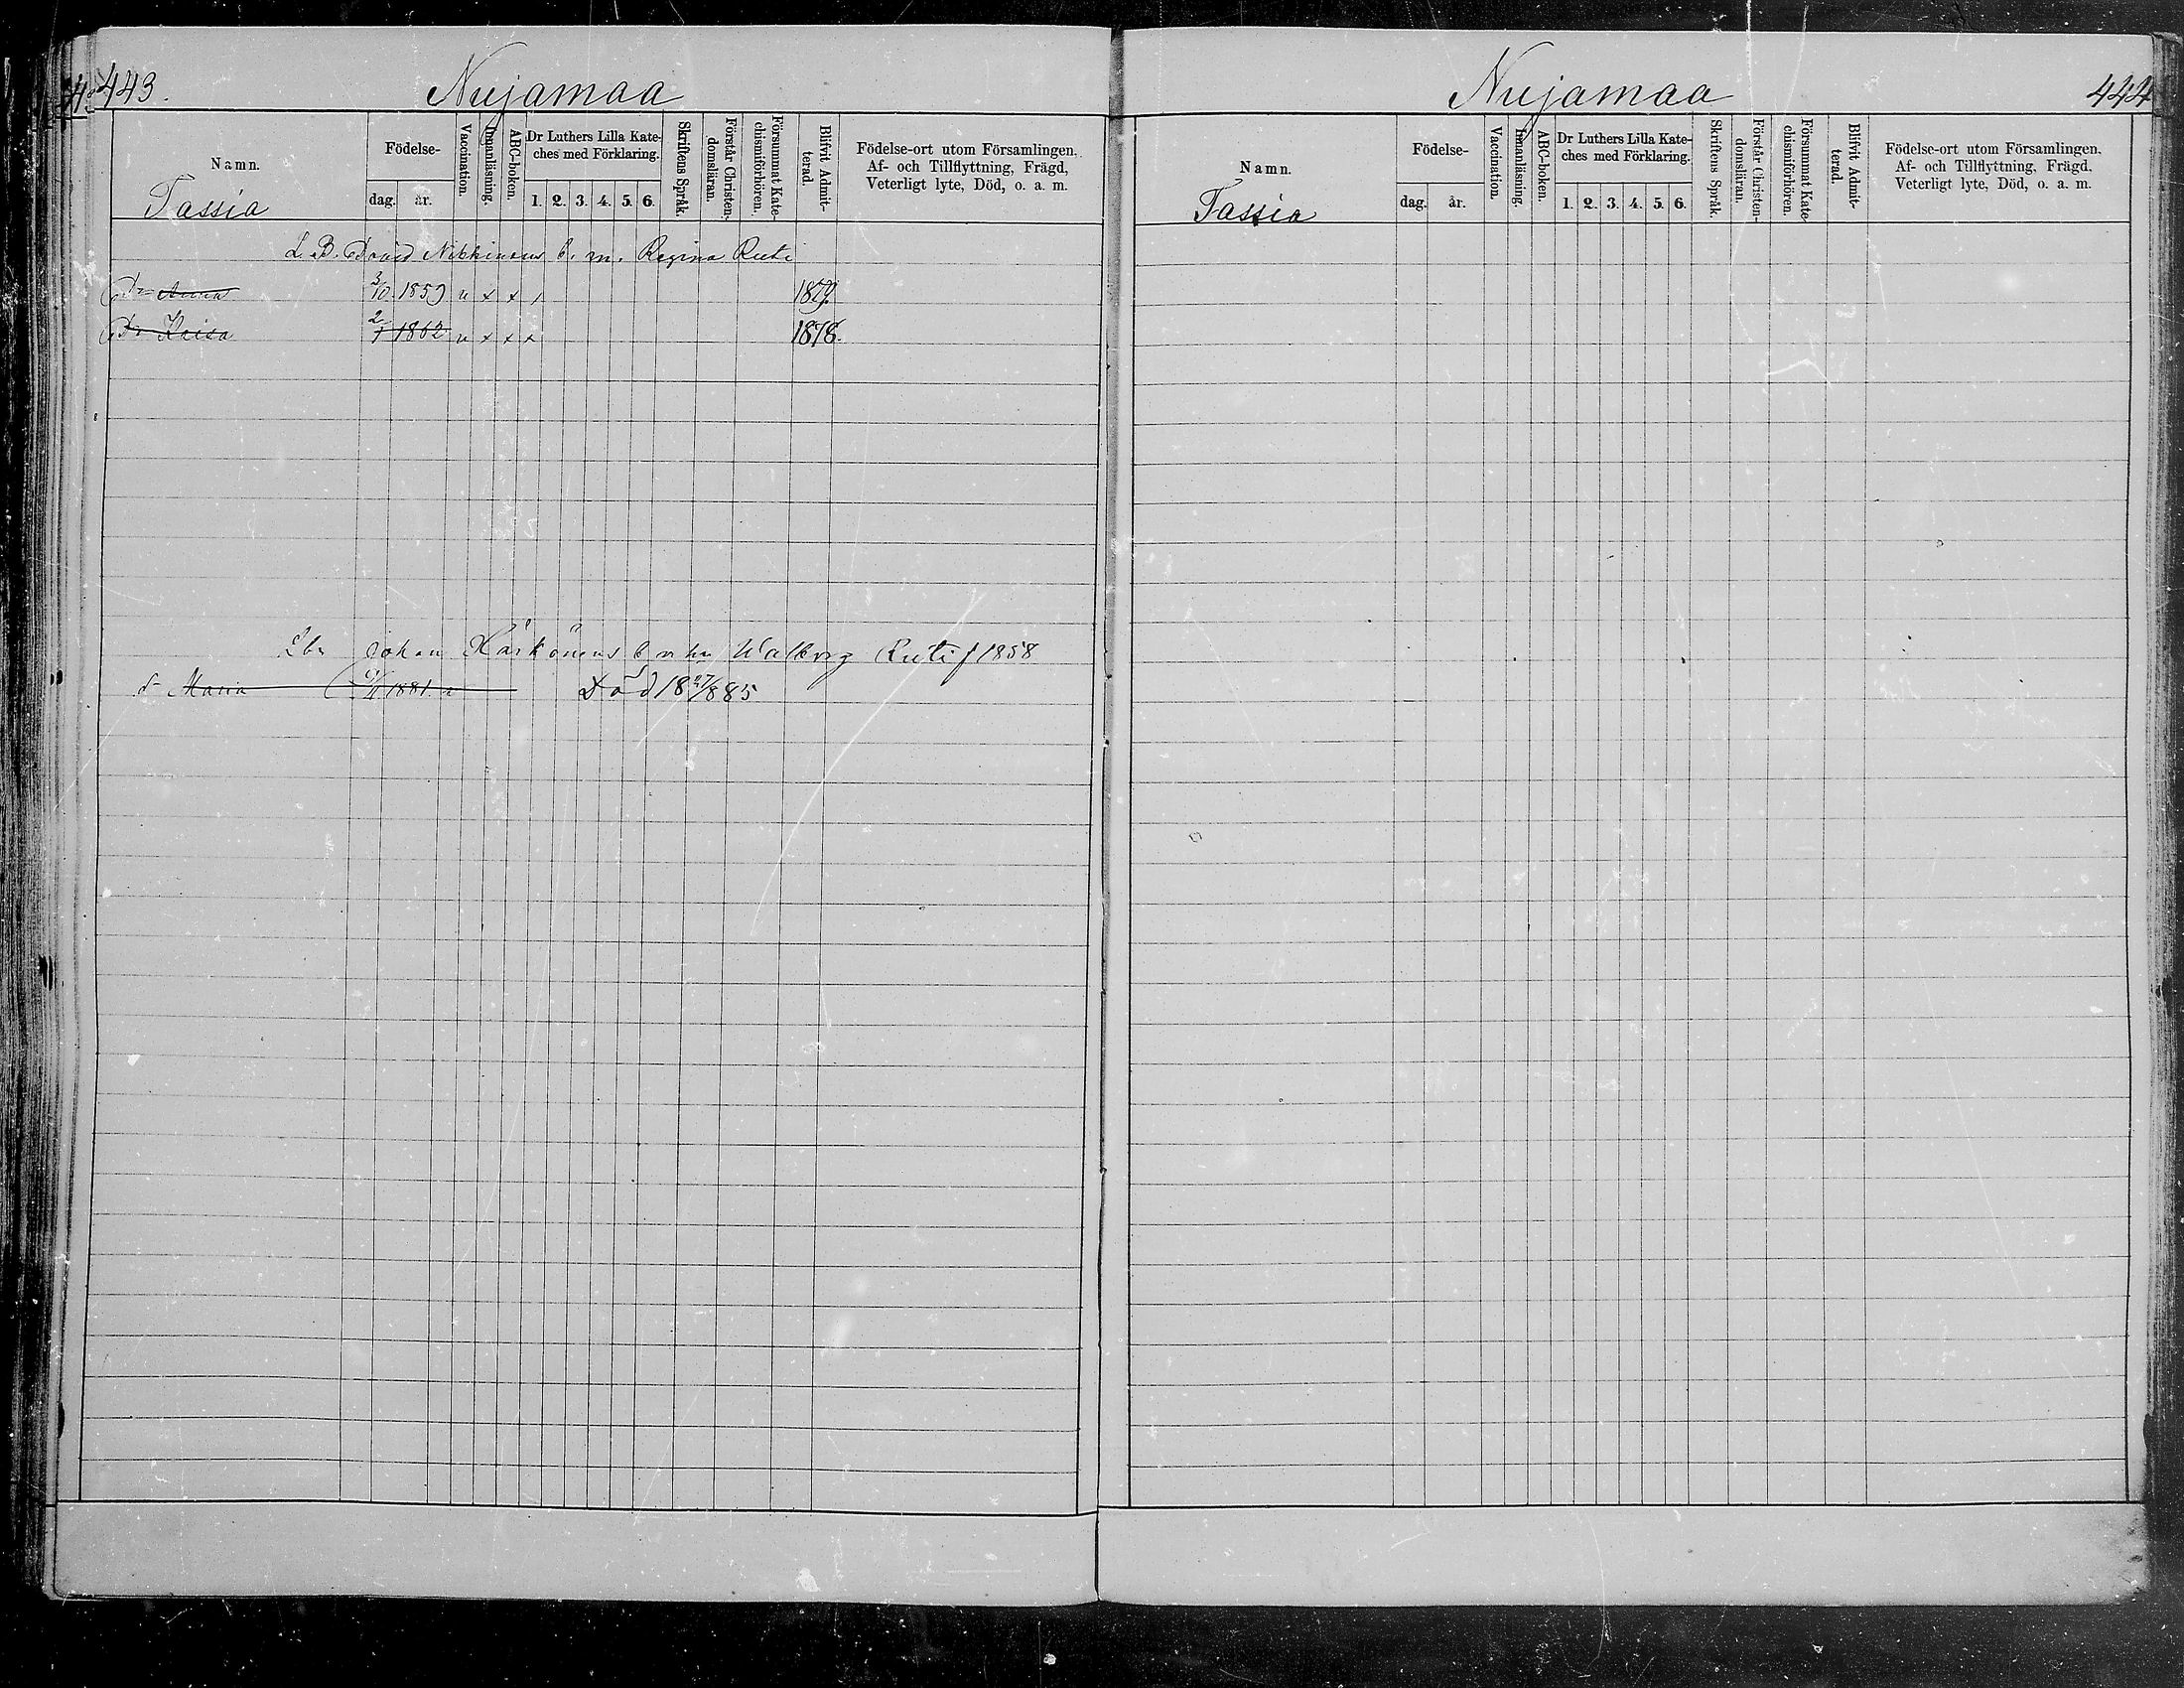 443.
Nuijamaa
Namn.
Tassia
Födelse-
dag. år.
Vaccination.
Innanläsning.
ABC-boken.
Dr Luthers Lilla Kate-
ches med Förklaring.
1. 2. 3. 4. 5. 6.
Skriftens Språk.
Förstår Christen-
domsläran.
Försummat Kate-
chismiförhören.
Blifvit Admit-
terad.
Födelse-ort utom Församlingen.
Af- och Tillflyttning, Frägd,
Veterligt lyte, Död, o. a. m.
L. B. David Nikkinens b. m. Regina Ruti
Dr Anna 3/10 1859 v x x / 1879.
Dr Kaisa 2/1 1862 v x x x 1878.
Lbr Johan Härkönens b m hu Walborg Ruti f 1858
d. Maria 1881 v Död 18 27/8 85
Nuijamaa
444
Namn.
Tassia
Födelse-
dag. år.
Vaccination.
Innanläsning.
ABC-boken.
Dr Luthers Lilla Kate-
ches med Förklaring.
1. 2. 3. 4. 5. 6.
Skriftens Språk.
Förstår Christen-
domsläran.
Försummat Kate-
chismiförhören.
Blifvit Admit-
terad.
Födelse-ort utom Församlingen.
Af- och Tillflyttning, Frägd.
Veterligt lyte, Död, o. a. m.